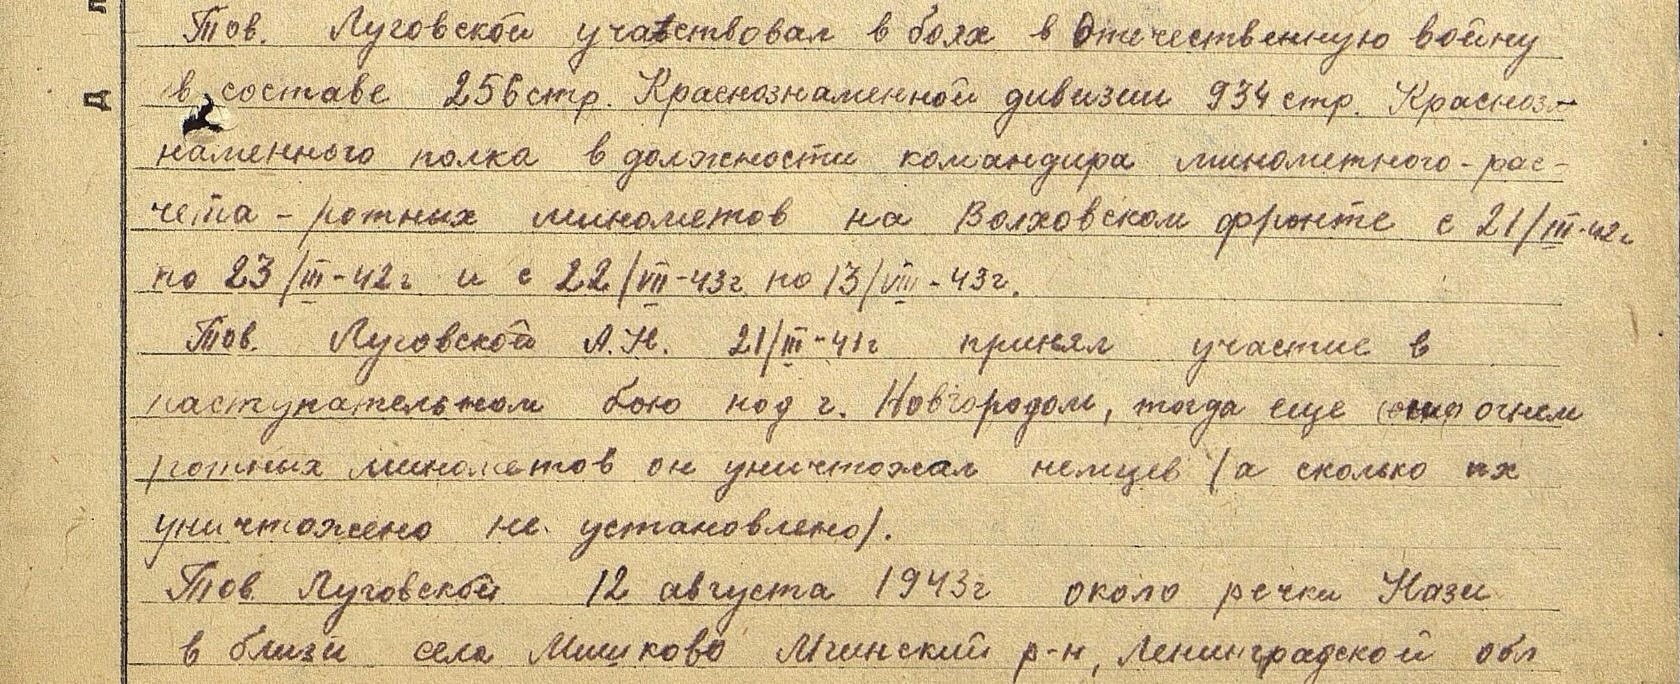 Тов. Луговской участвовал в боях в Отечественную войну
в составе 256 стр. Краснознаменной дивизии 934 стр. Красноз-
наменного полка в должности командира минометного-рас-
чета - ротных минометов на Волховском фронте с 21/III-42г
по 23/III-42г и с 22/VII-43г по 13/VIII-43г.
Тов. Луговской А.Н. 21/III-41г принял участие в
наступательном бою под г. Новгородом, тогда еще огнем
ротных минометов он уничтожал немцев (а сколько их
уничтожено не установлено).
Тов. Луговской 12 августа 1943г около речки Нази
в близи села Мишково Мгинский р-н, Ленинградской обл
Д